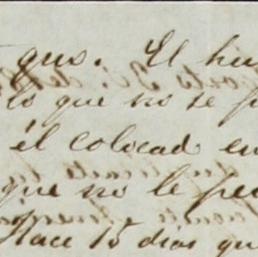 que. El hu
lo que no se p
él colocad en
que no le pe
Hace 15 dias qu